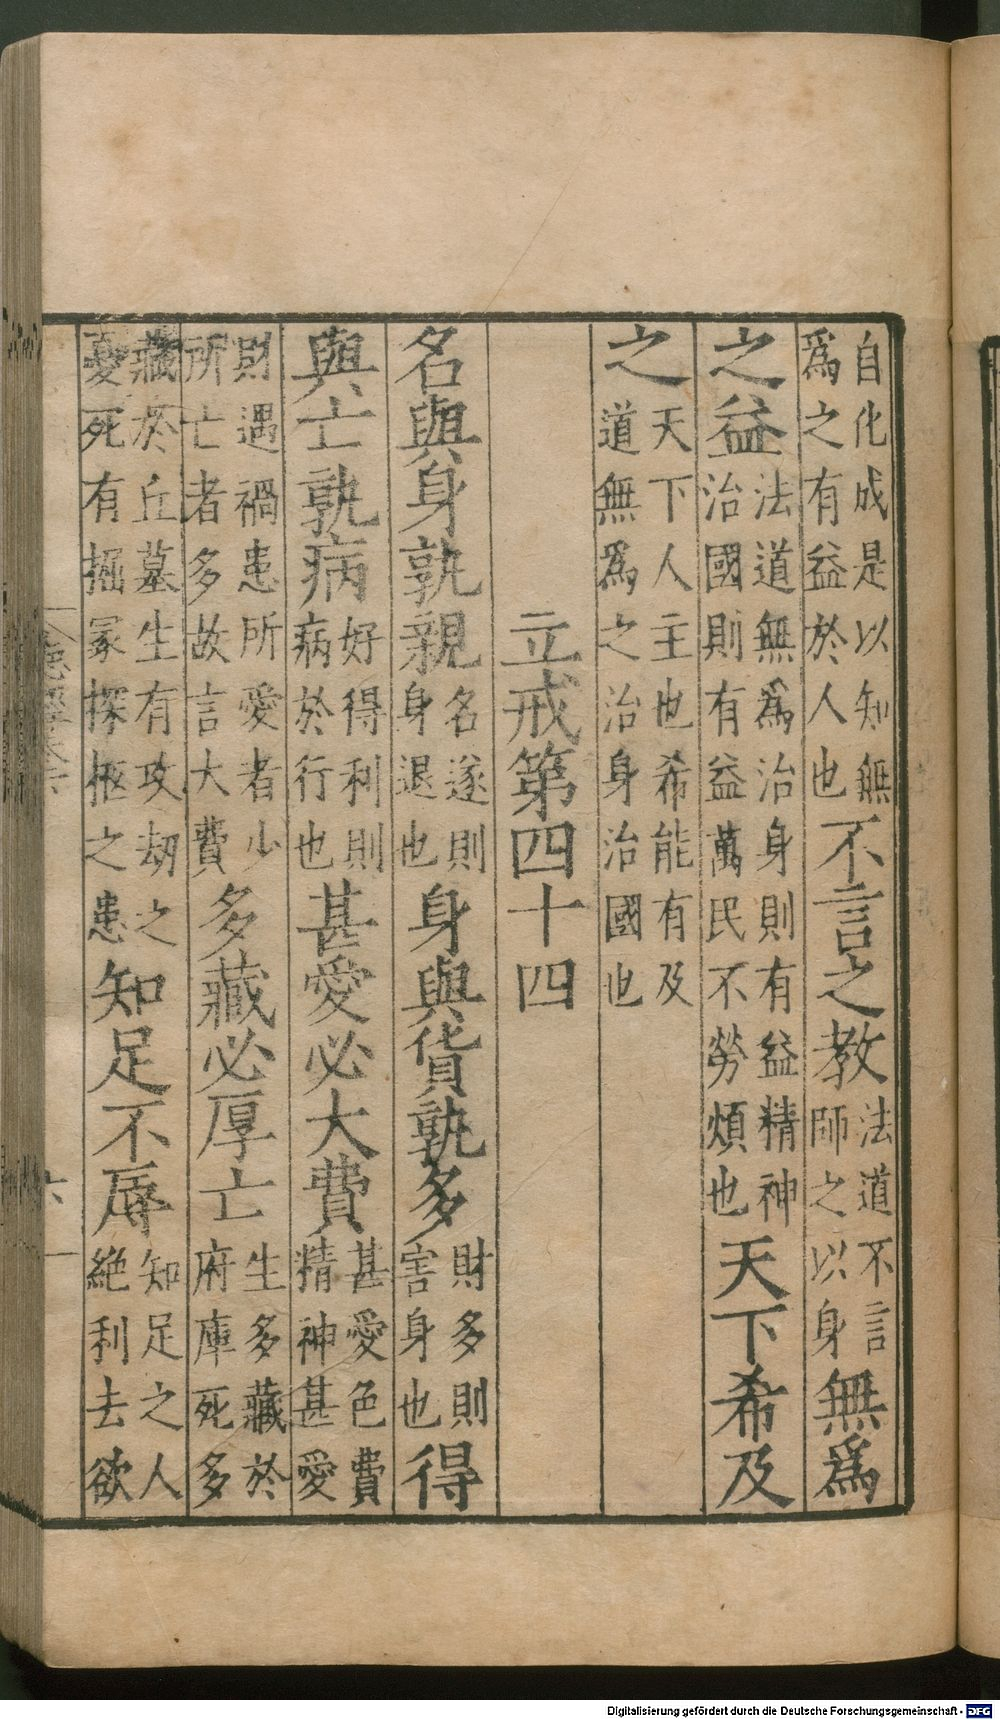 自化成是以知無
爲之有益於人也
不言之教
法道不言
師之以身
無爲
之益
法道無爲治身則有益精神
治國則有益萬民不勞煩也
天下希及
之
天下人主也希能有及
道無爲之治身治國也
立戒第四十四
名與身孰親
名遂則
身退也
身與貨孰多
財多則
害身也
得
與亡孰病
好得利則
病於行也
甚愛必大費
甚愛色費
精神甚愛
財遇禍患所愛者少
所亡者多故言大費
多藏必厚亡
生多藏於
府庫死多
藏於丘墓生有攻劫之
憂死有掘冢探柩之患
知足不辱
知足之人
絶利去欲
六
Digitalisierung gefördert durch die Deutsche Forschungsgemeinschaft - DFG